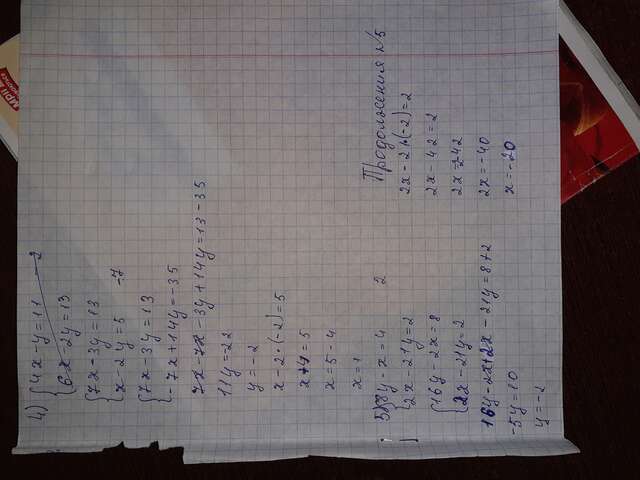 4) {4x - y = 11 - 2
{6x - 2y = 13
{7x - 3y = 13
{x - 2y = 5 -7
{7x - 3y = 13
{-7x + 14y = -35
7x - 7x - 3y + 14y = 13 - 35
11y = 22
y = -2
x - 2 · (-2) = 5
x + 4 = 5
x = 5 - 4
x = 1
5) {8y - x = 4 2
{2x - 21y = 2
{16y - 2x = 8
{2x - 21y = 2
16y - 2x + 2x - 21y = 8 + 2
-5y = 10
y = -2
Продолжения №5
2x - 21·(-2) = 2
2x - 42 = 2
2x = 2-42
2x = -40
x = -20